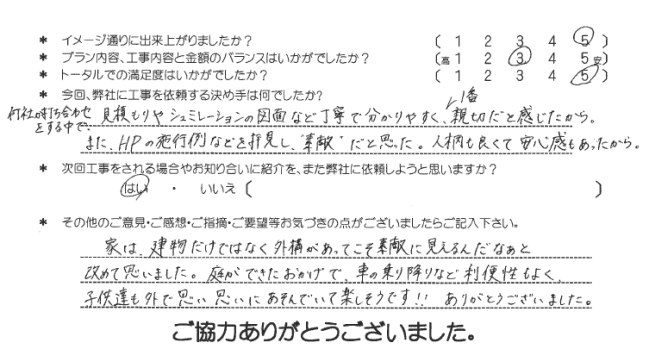 * イメージ通りに出来上がりましたか? ( 1 2 3 4 5 )
* プラン内容、工事内容と金額のバランスはいかがでしたか? (高 1 2 3 4 5 安)
* トータルでの満足度はいかがでしたか? ( 1 2 3 4 5 )
* 今回、弊社に工事を依頼する決め手は何でしたか?
1番
何社か打ち合わせをする中で、見積もりやシュミレーションの図面など丁寧で分かりやすく、親切だと感じたから。
また、HPの施行例などを拝見し、"素敵"だと思った。人柄も良くて安心感もあったから。
* 次回工事をされる場合やお知り合いに紹介を、また弊社に依頼しようと思いますか?
はい ・ いいえ ( )
* その他のご意見・ご感想・ご指摘・ご要望等お気づきの点がございましたらご記入下さい。
家は、建物だけではなく外構があってこそ素敵に見えるんだなぁと
改めて思いました。庭ができたおかげで、車の乗り降りなど利便性もよく、
子供達も外で思い思いにあそんでいて楽しそうです!! ありがとうございました。
ご協力ありがとうございました。